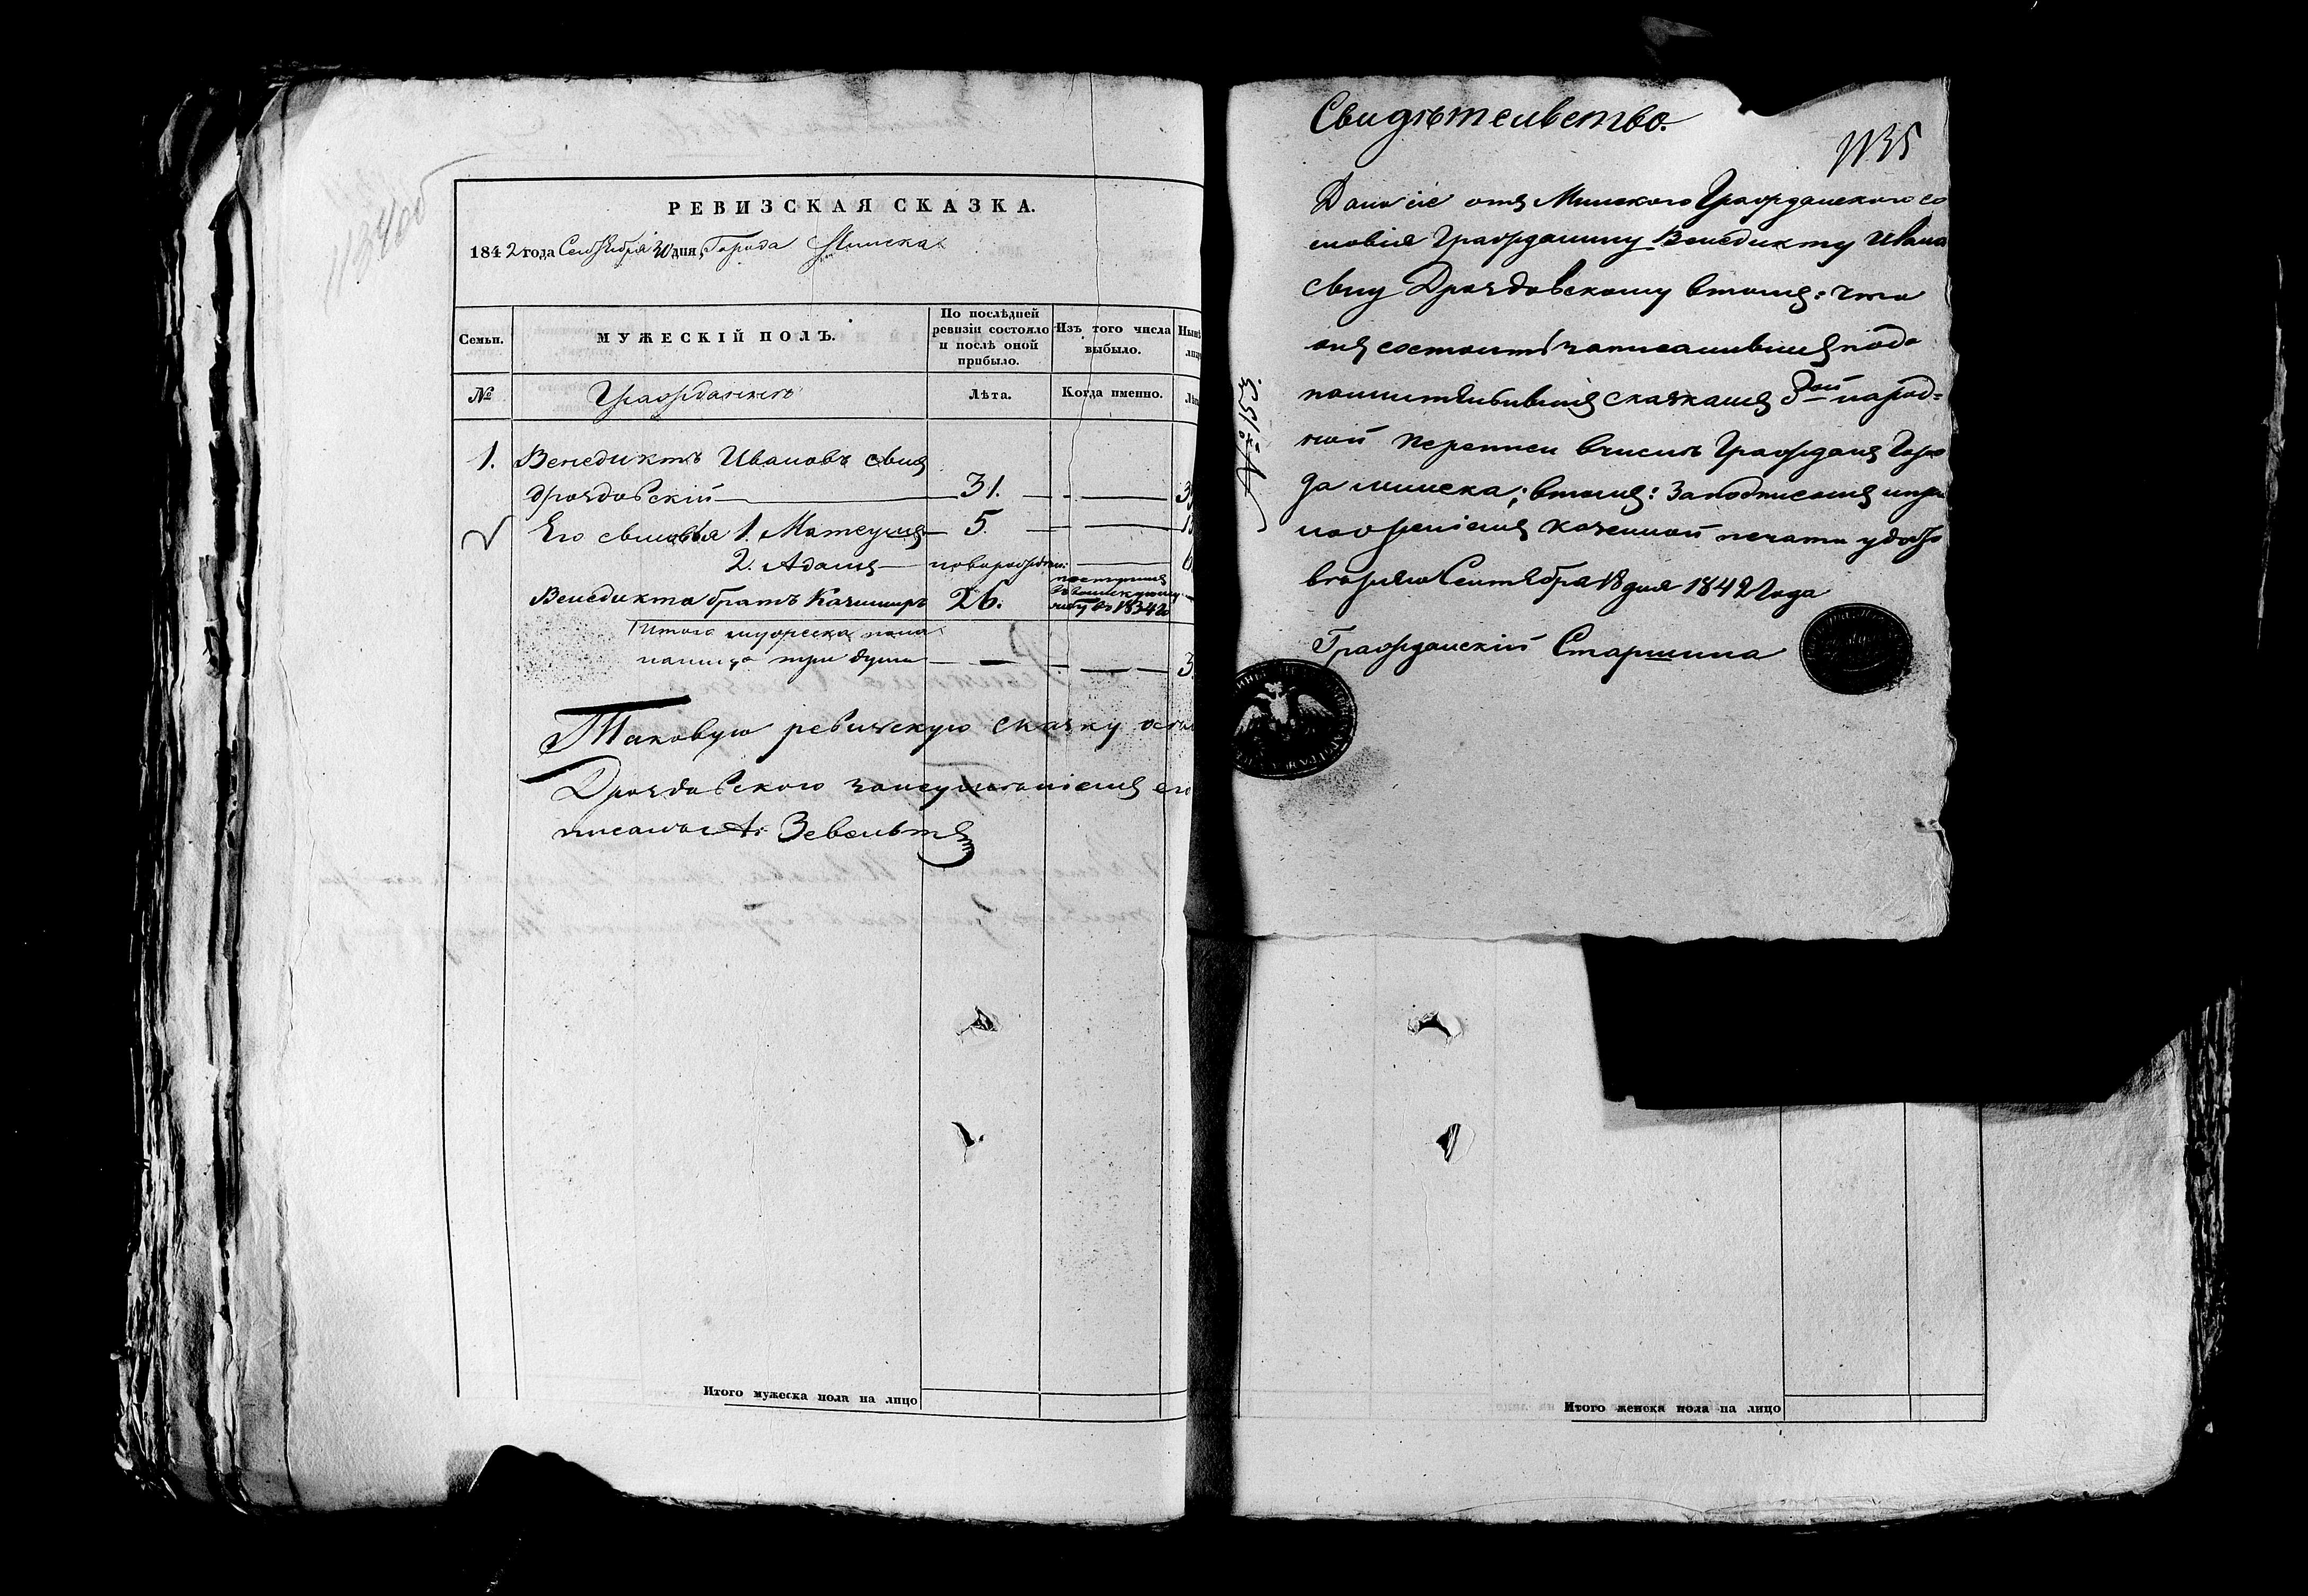 РЕВИЗСКАЯ СКАЗКА.
1842 года Сентября 30 дня, Города Минска
Семьи.
МУЖЕСКІЙ ПОЛЪ.
По послѣдней ревизіи состояло и послѣ оной прибыло.
Изъ того числа выбыло.
№
Гражданинъ
Лѣта.
Когда именно.
1. Венедиктъ Ивановъ сынъ
Дроздовскій 31.
Его сыновья 1. Матеушъ 5.
2. Адамъ новорожден:
Венедикта братъ Казимиръ 26.
Итого мужеска пола
налицо три души 3.
Таковую ревизскую сказку
Дроздовскаго
А: Зевальтъ
Итого мужеска пола на лицо
Свидѣтельство.
1135
Дано сіе отъ Минского Гражданского со
словія Гражданину Венедикту Ивано
свну Дроздовскому втомъ: что
онъ состоитъ записаннымъ подо
сказкамъ 8ой народ=
ной переписи вчислѣ Гражданъ Горо
да Минска; втомъ: Заподписомъ ипри
ложеніемъ казенной печати удосто
вѣряю Сентября 18 дня 1842 Года
Гражданскій Старшина
№ 155
Итого женска пола на лицо